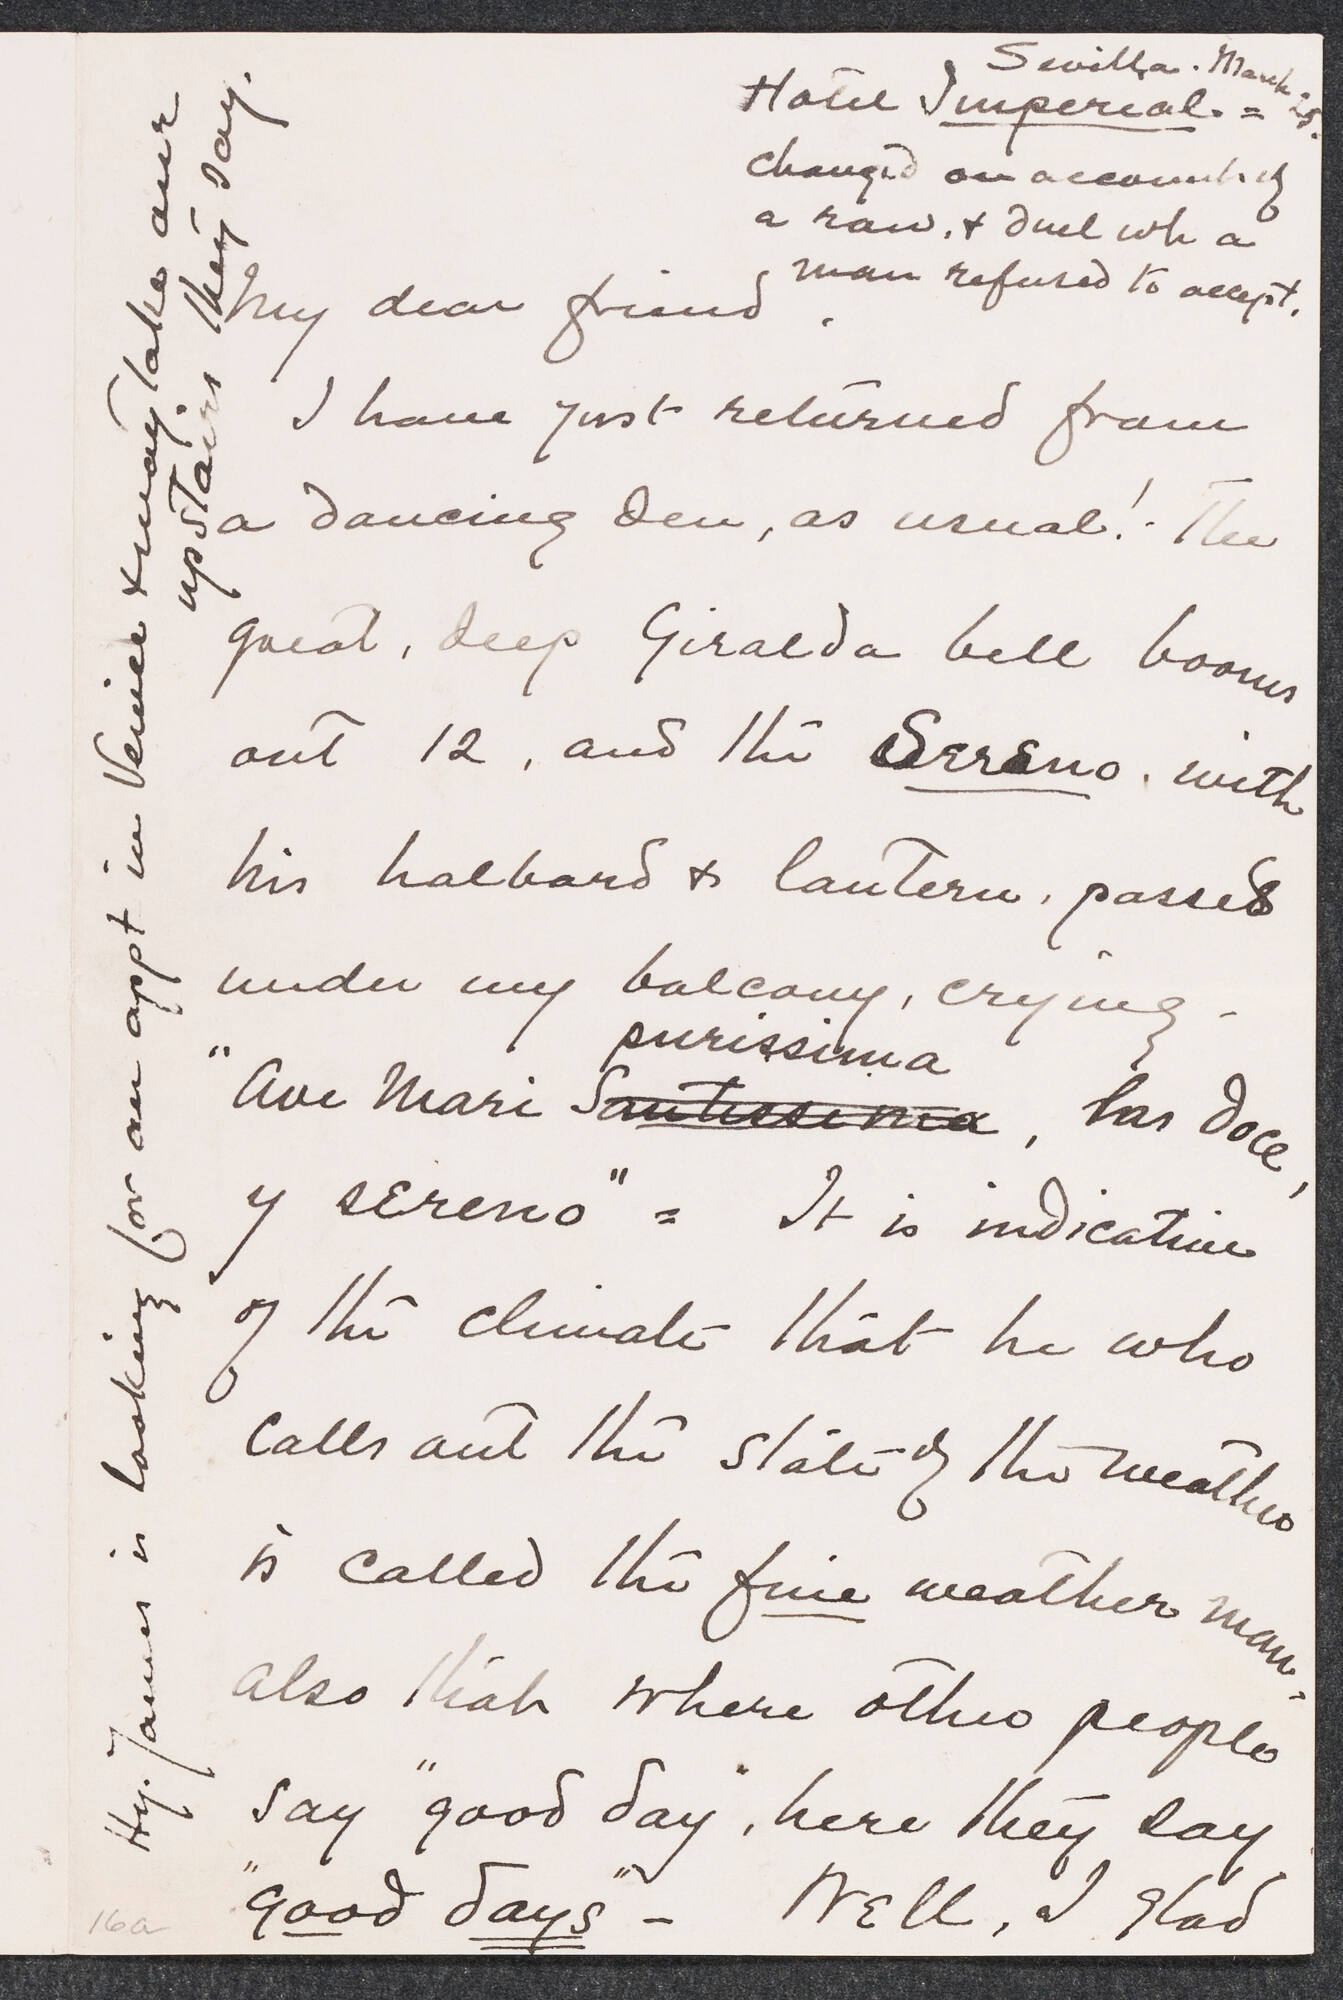 Sevilla. March 25.
Hotel Imperial =
changed on account of
a row, & duel wh a
man refused to accept.
My dear friend.
I have just returned from
a dancing den, as usual! The
great, deep Giralda bell booms
out 12, and the Sereno, with
his halbard & lantern, passes
under my balcony, crying -
purissima
"Ave Mari Santissima, las doce,
y sereno" = It is indicative
of the climate that he who
calls out the state of the weather
is called the fine weather man,
also that where other people
say "good day", here they say
"good days" - Well, I glad
Hy. James is looking for an appt in Venice & may take our
upstairs they say.
16a